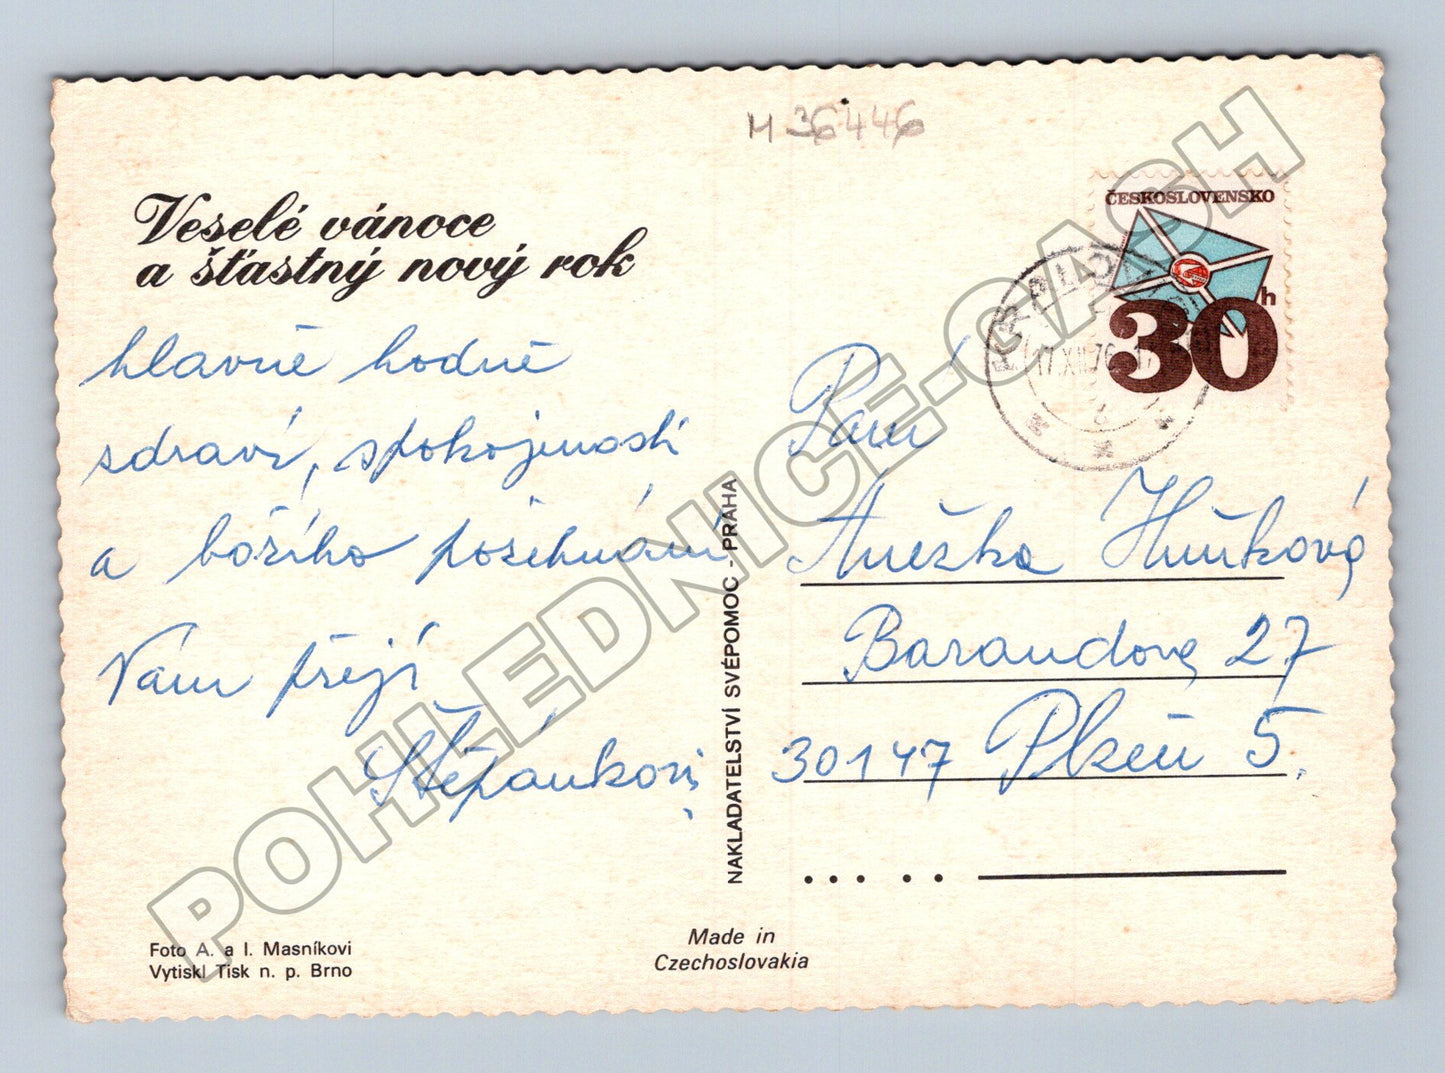 M 36446
Veselé vánoce
a šťastný nový rok
hlavně hodně
zdraví, spokojenosti
a božího požehnání
Vám přejí
Štěpánkovi
Foto A. a I. Masníkovi
Vytiskl Tisk n. p. Brno
NAKLADATELSTVÍ SVÉPOMOC - PRAHA
Made in
Czechoslovakia
ČESKOSLOVENSKO
30 h
17.XII.76
Paní
Anežka
Barandova 27
30147 Plzeň 5.
POHLEDNICE-CASH